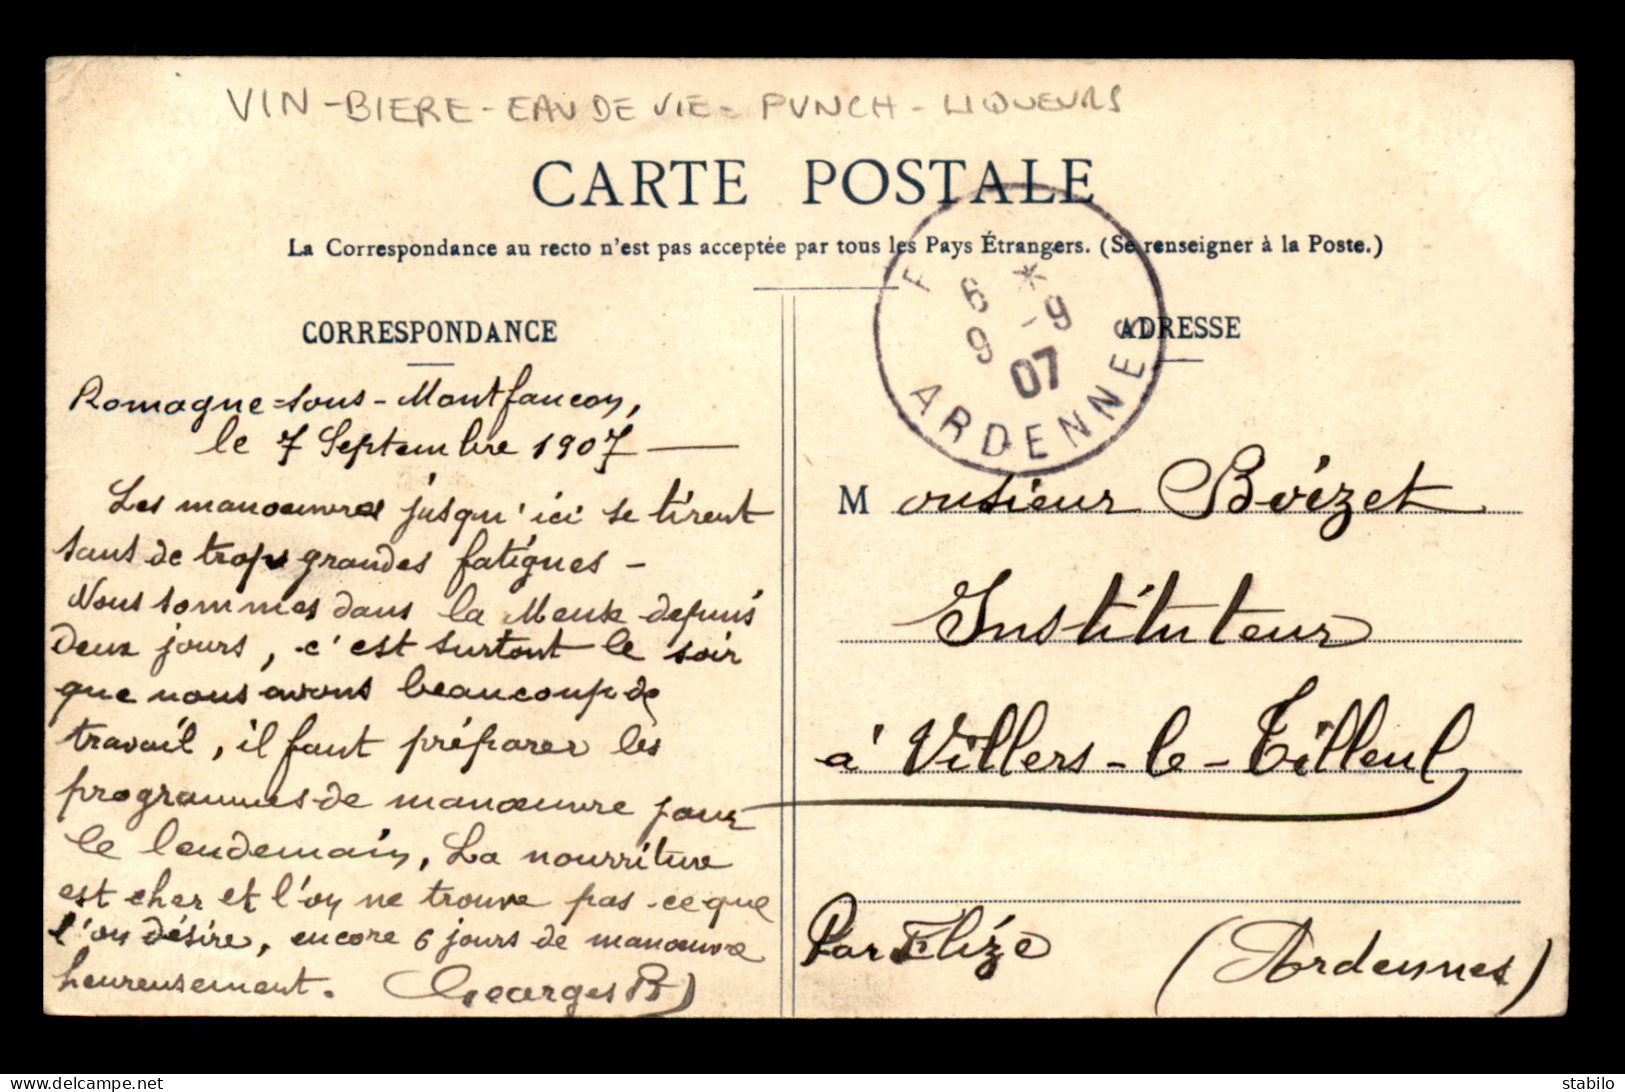 VIN - BIERE - EAU DE VIE - PUNCH - LIQUEURS
CARTE POSTALE
La Correspondance au recto n'est pas acceptée par tous les Pays Étrangers. (Se renseigner à la Poste.)
CORRESPONDANCE
Romagne=sous-Montfaucon,
le 7 Septembre 1907 —
Les manoeuvres jusqu'ici se tirent
sans de trop grandes fatigues -
Nous sommes dans la Meuse depuis
deux jours, c'est surtout le soir
que nous avons beaucoup de
travail, il faut préparer les
programmes de manœuvre pour
le lendemain, La nourriture
est cher et l'on ne trouve pas ce que
l'on désire, encore 6 jours de manœuvre
heureusement. Georges B
6 * 9
9 - 07
ARDENNES
ADRESSE
Monsieur Boizet
Instituteur
à Villers-le-Tilleul
Par Flize (Ardennes)
stabilo